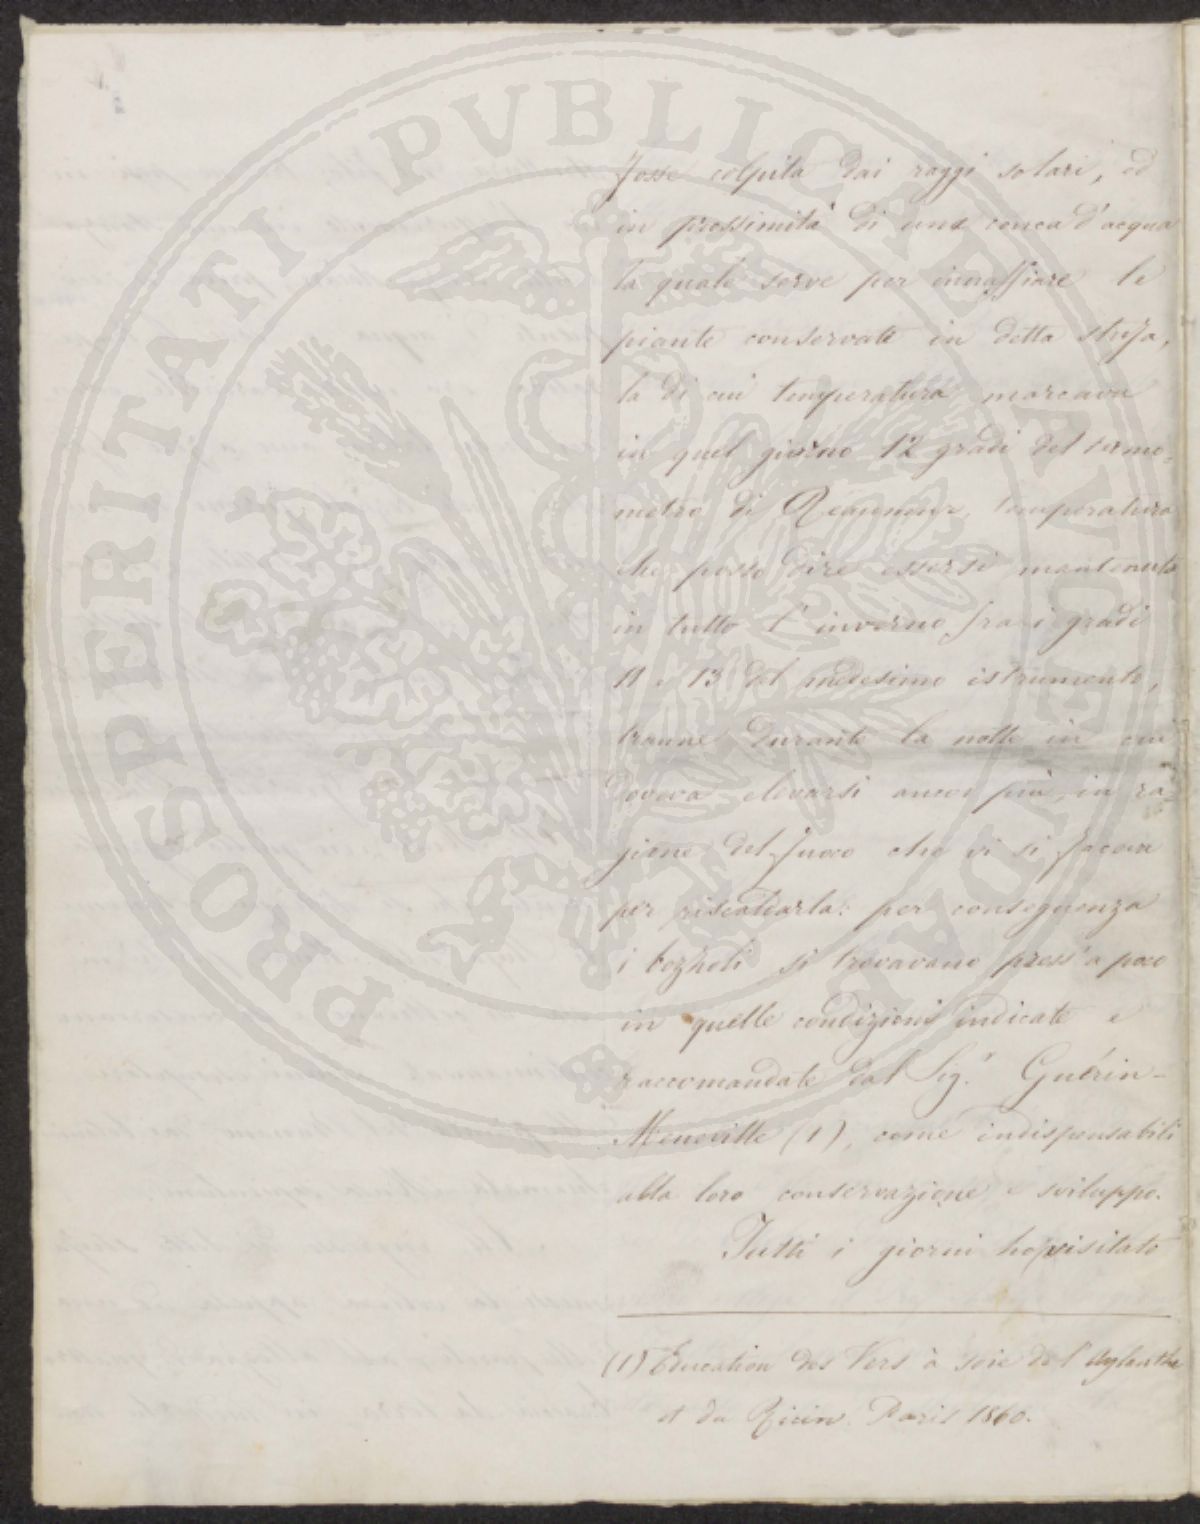 PROSPERITATI PVBLICAE AVGENDAE
fosse colpita dai raggi solari, ed
in prossimità di una conca d'acqua
la quale serve per innaffiare le
piante conservate in detta stufa,
la di cui temperatura marcava
in quel giorno 12 gradi del termo=
metro di Reaumur, temperatura
che posso dire essersi mantenuta
in tutto l'inverno fra i gradi
11 e 13 del medesimo istrumento,
tranne durante la notte in cui
doveva elevarsi ancor più, in ra=
gione del fuoco che vi si faceva
per riscaldarla: per conseguenza
i bozzoli si trovavano press'a poco
in quelle condizioni indicate e
raccomandate dal Sig.r Guérin-
Meneville (1), come indispensabili
alla loro conservazione e sviluppo.
Tutti i giorni ho visitato
(1) Education des Vers à soie de l'Aylanthe
et du Ricin. Paris 1860.